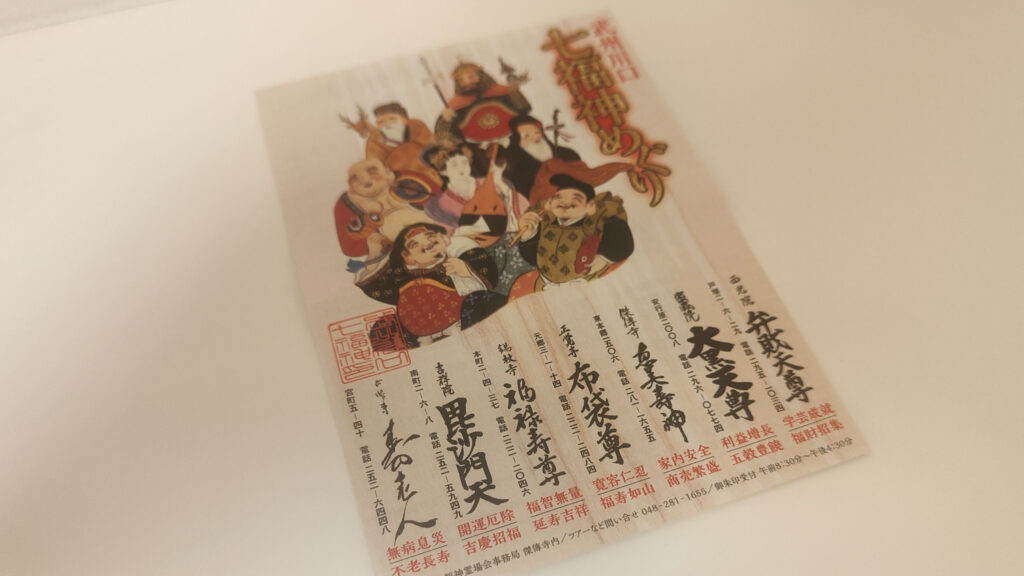 武州川口
七福神めぐり
西光院
弁財天尊
戸塚二-六-二九 電話二九五-一〇三四
学芸成就
福財招集
大黒天尊
電話二九六-〇七七四
利益増長
五穀豊饒
傑傳寺
東本郷一五〇六 電話二八一-一六五五
家内安全
商売繁盛
正覚寺
布袋尊
元郷三-一-十四 電話二二二-二四八四
寛容仁忍
福寿如山
錫杖寺
福禄寿尊
本町二-四-三七 電話二二二-二〇四六
福智無量
延寿吉祥
吉祥院
毘沙門天
南町二-六-八 電話二五二-五九四九
開運厄除
吉慶招福
寿老人
宮町五-四十 電話二五二-六四四八
無病息災
不老長寿
七福神
神霊場会事務局 傑傳寺内/ツアーなど問い合せ 048-281-1655/御朱印受付 午前8:30分〜午後4:30分